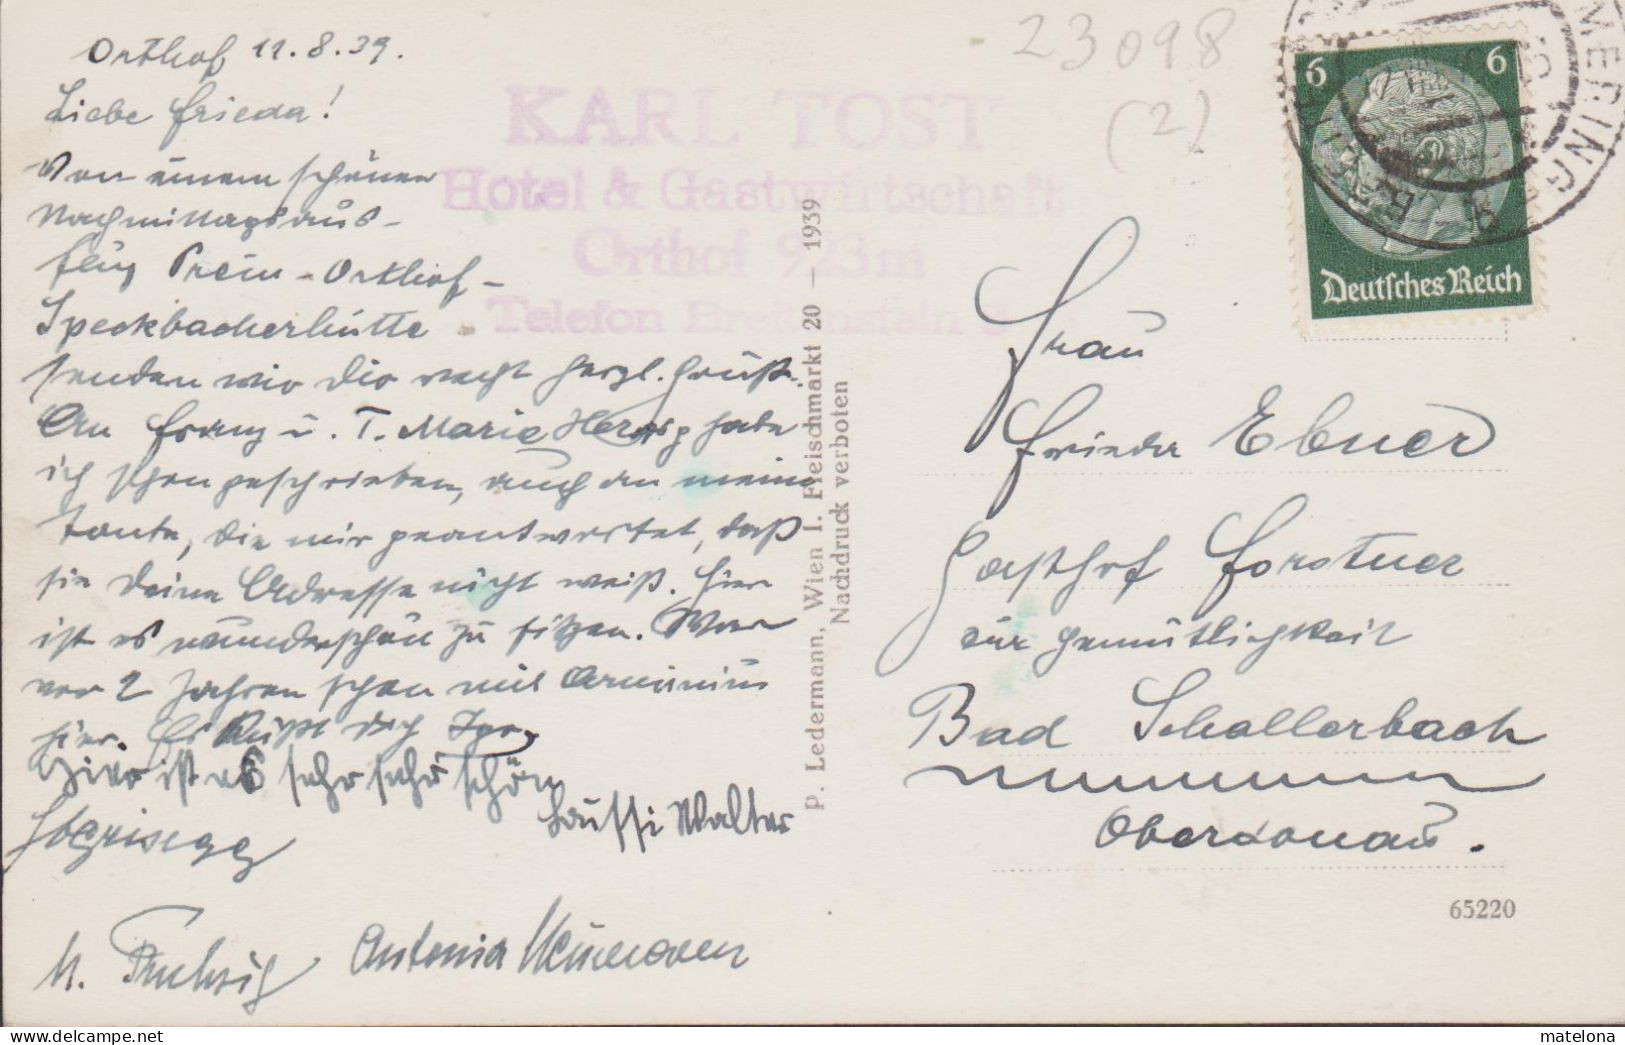 Orthof 11.8.39.
Liebe Frieda!
Von einem schönen
Nachmittagsaus-
flug Prein - Orthof -
Speckbacherhütte
senden wir Dir recht herzl. Grüße.
An Franz u. T. Marie habe
ich schon geschrieben, auch an meine
Tante, die mir geantwortet, daß
sie Deine Adresse nicht weiß. Hier
ist es wunderschön zu sitzen. War
vor 2 Jahren schon mit Arminius
hier. Es küßt dich
Hier ist es sehr sehr schön
Walter
Antonia
KARL TOST
Hotel & Gastwirtschaft
Orthof 923m
Telefon Breitenstein
P. Ledermann, Wien I. Fleischmarkt 20 — 1939
Nachdruck verboten
23098
(2)
6 6
Deutsches Reich
Frau
Frieda Ebner
Gasthof Forstner
zur Gemütlichkeit
Bad Schallerbach
Oberdonau.
65220
matelona